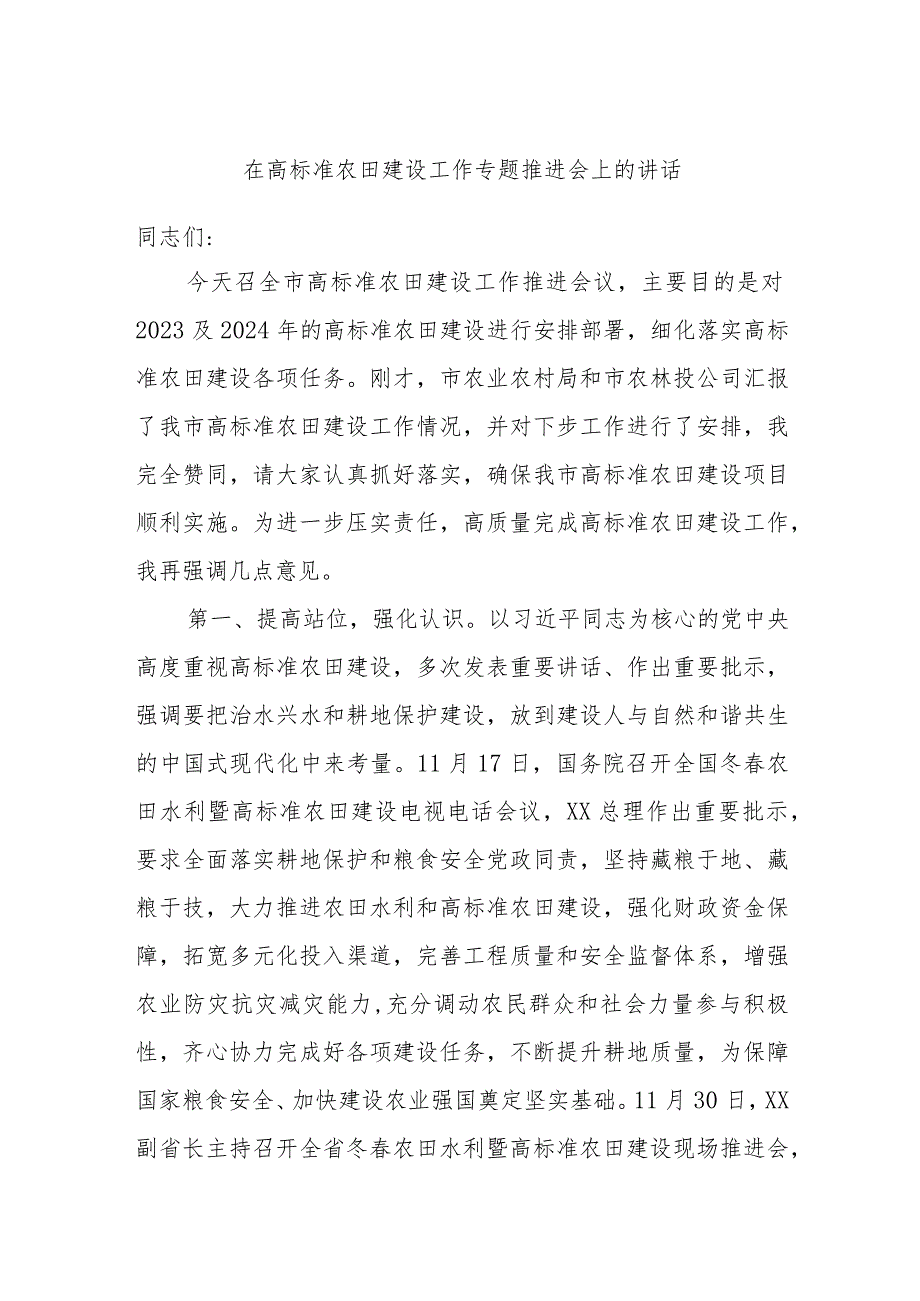 在高标准农田建设工作专题推进会上的讲话
同志们:
今天召全市高标准农田建设工作推进会议，主要目的是对
2023及2024年的高标准农田建设进行安排部署，细化落实高标
准农田建设各项任务。刚才，市农业农村局和市农林投公司汇报
了我市高标准农田建设工作情况，并对下步工作进行了安排，我
完全赞同，请大家认真抓好落实，确保我市高标准农田建设项目
顺利实施。为进一步压实责任，高质量完成高标准农田建设工作，
我再强调几点意见。
第一、提高站位，强化认识。以习近平同志为核心的党中央
高度重视高标准农田建设，多次发表重要讲话、作出重要批示，
强调要把治水兴水和耕地保护建设，放到建设人与自然和谐共生
的中国式现代化中来考量。11月17日，国务院召开全国冬春农
田水利暨高标准农田建设电视电话会议，XX总理作出重要批示，
要求全面落实耕地保护和粮食安全党政同责，坚持藏粮于地、藏
粮于技，大力推进农田水利和高标准农田建设，强化财政资金保
障，拓宽多元化投入渠道，完善工程质量和安全监督体系，增强
农业防灾抗灾减灾能力,充分调动农民群众和社会力量参与积极
性，齐心协力完成好各项建设任务，不断提升耕地质量，为保障
国家粮食安全、加快建设农业强国奠定坚实基础。11月30日，XX
副省长主持召开全省冬春农田水利暨高标准农田建设现场推进会，